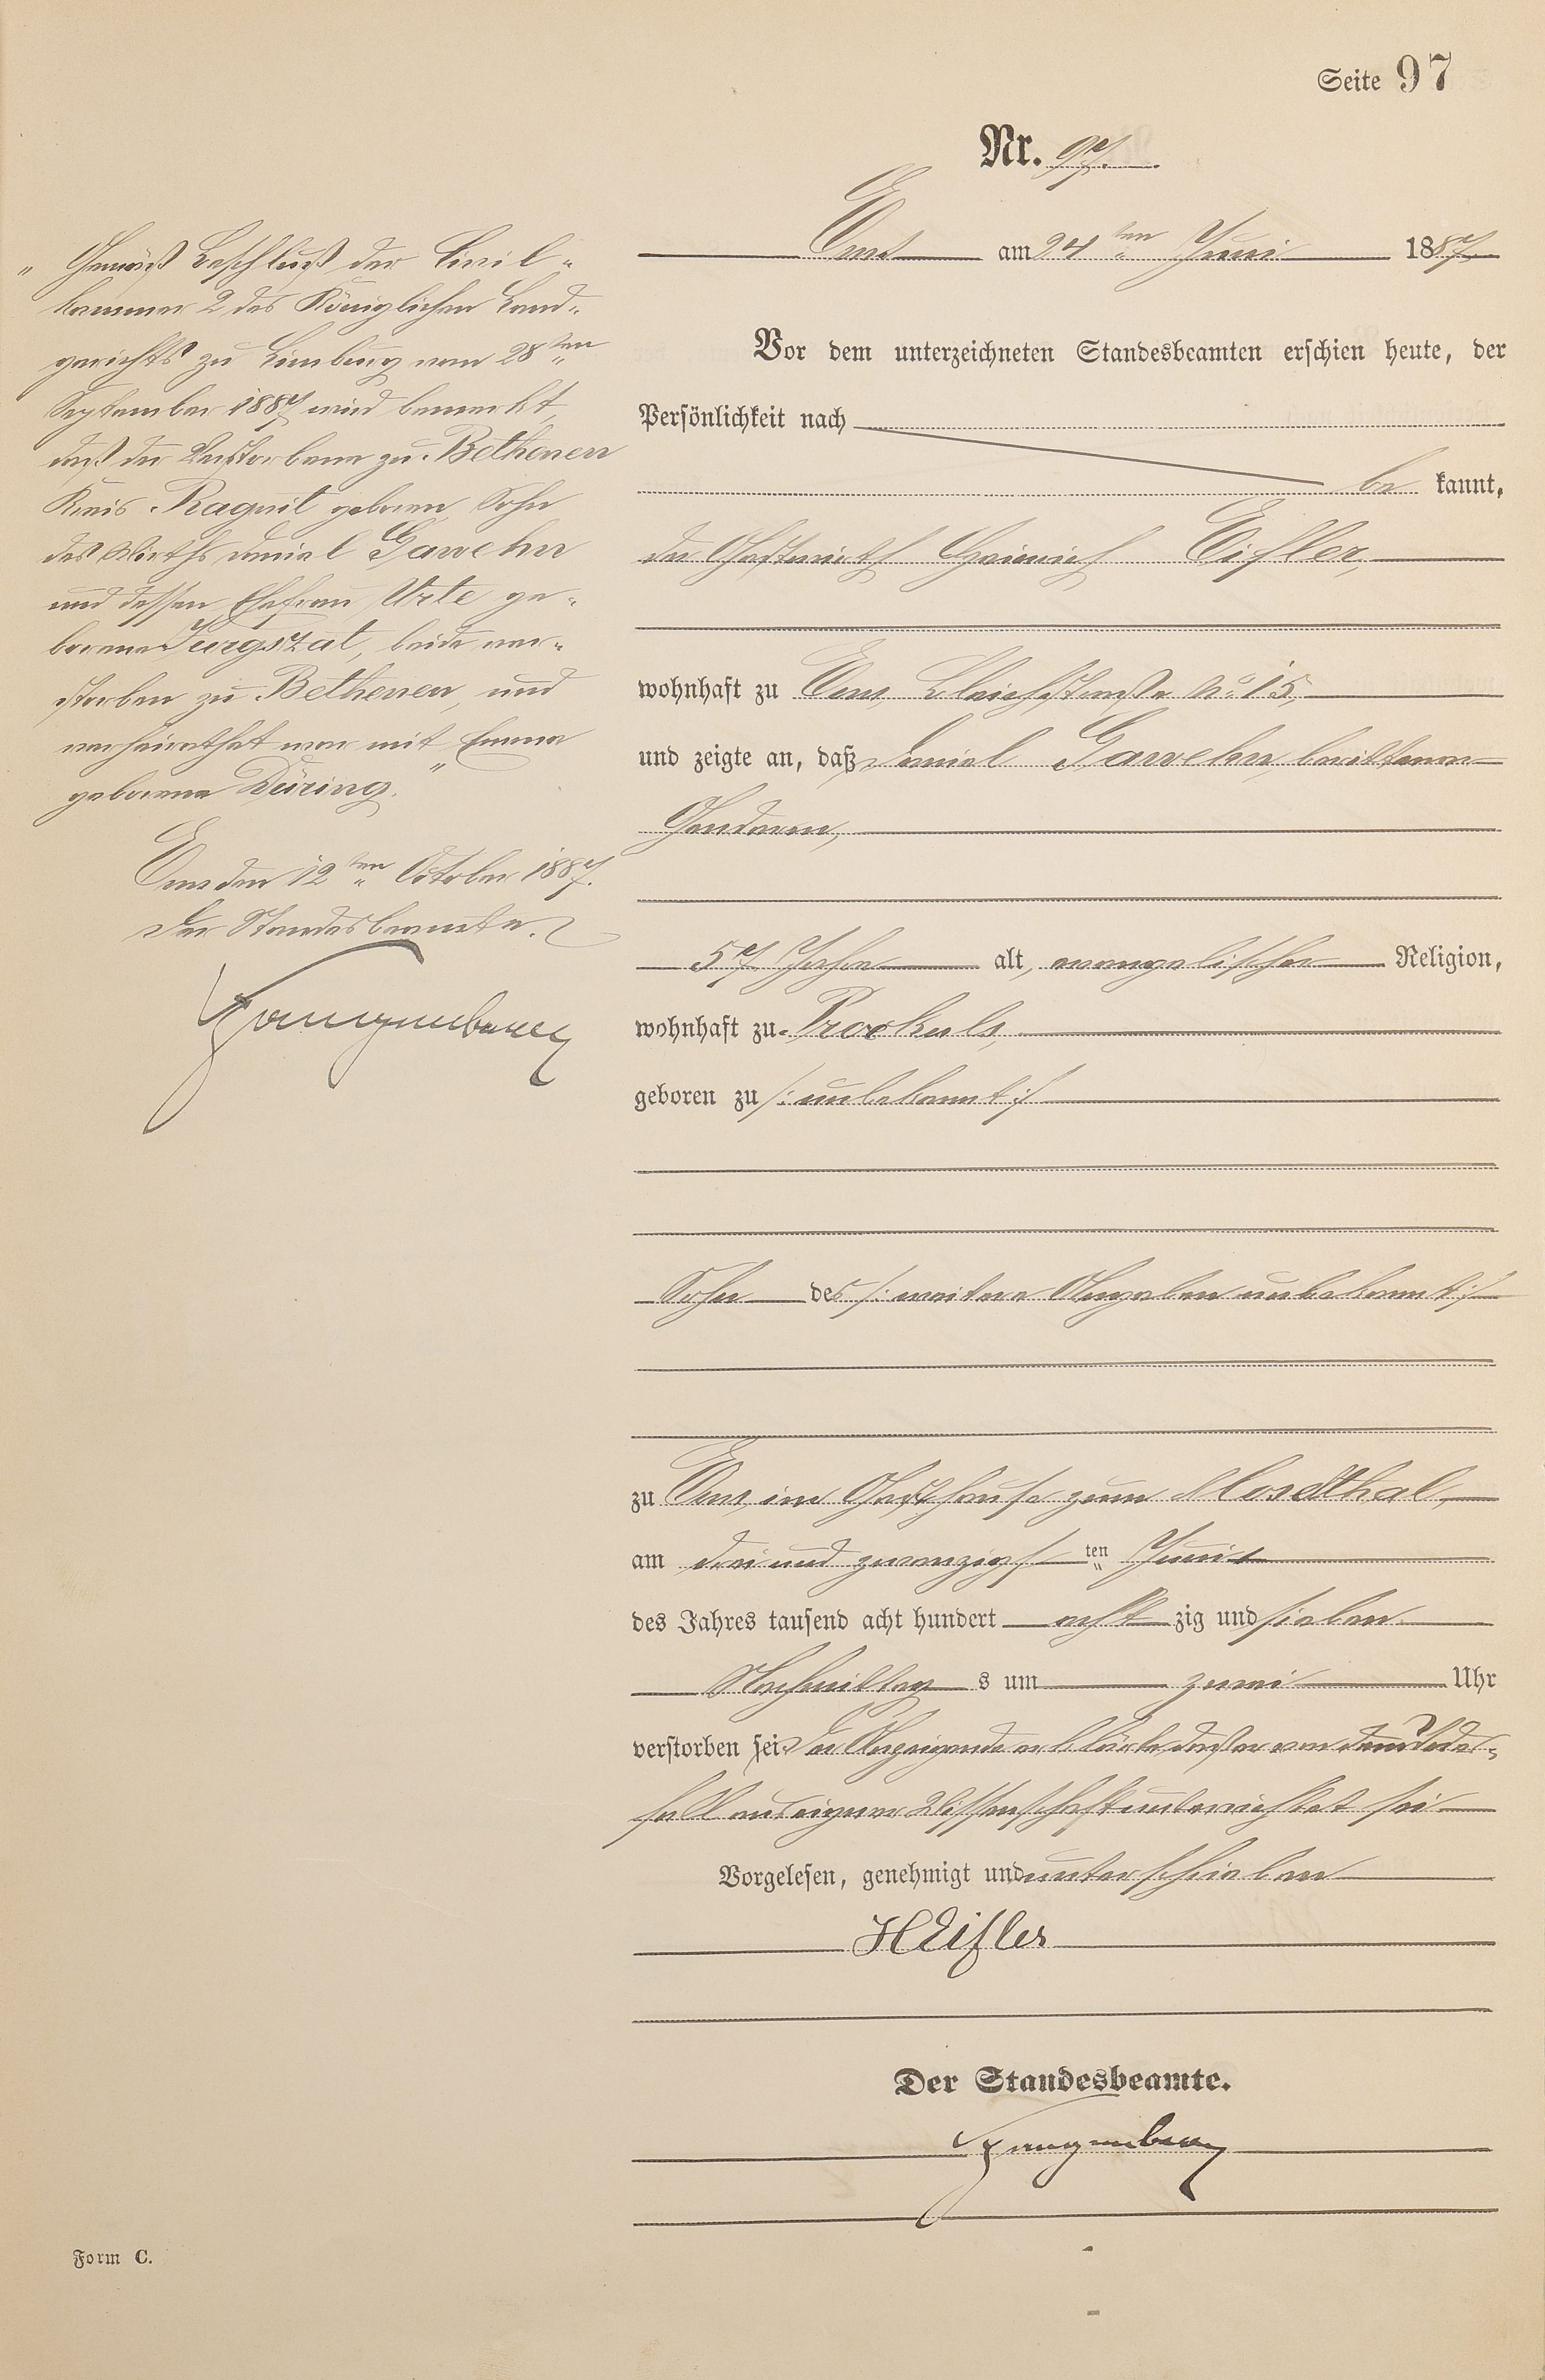 Seite 97
Nr. 97.
Ems am 24ten Juni 1887.
Vor dem unterzeichneten Standesbeamten erschien heute, der
Persönlichkeit nach
be kannt,
der Gastwirth Heinrich Eifler,
wohnhaft zu Ems, Bleichstraße No 15,
und zeigte an, daß Daniel Gawehn, berittener
Gendarm,
57 Jahre alt, evangelischer Religion,
wohnhaft zu Prookuls,
geboren zu /: unbekannt :/
Sohn des /: weitere Angaben unbekannt :/
zu Ems, im Gasthause zum Mosdthal,
am drei und zwanzigsten Juni
des Jahres tausend acht hundert acht zig und sieben
Nachmittag s um zwei Uhr
verstorben sei. Der Anzeigende erklärte, daß er von dem Todes-
fall aus eigener Wissenschaft unterrichtet sei
Vorgelesen, genehmigt und unterschrieben
H Eifler
Der Standesbeamte.
„Gemäß Beschluß der Civil-
kammer 2 des Königlichen Land-
gerichts zu Limburg vom 28ten
September 1887 wird bemerkt,
daß der Verstorbene zu Bethenen
Kreis Ragnit geboren, Sohn
des Wirths Daniel Gawehn
und dessen Ehefrau Urte ge-
borene Jurgszat, beide ver-
storben zu Bethenen, und
verheirathet war mit Emma
geborene Düring.“
Ems den 12ten October 1887.
Der Standesbeamte.
Form C.